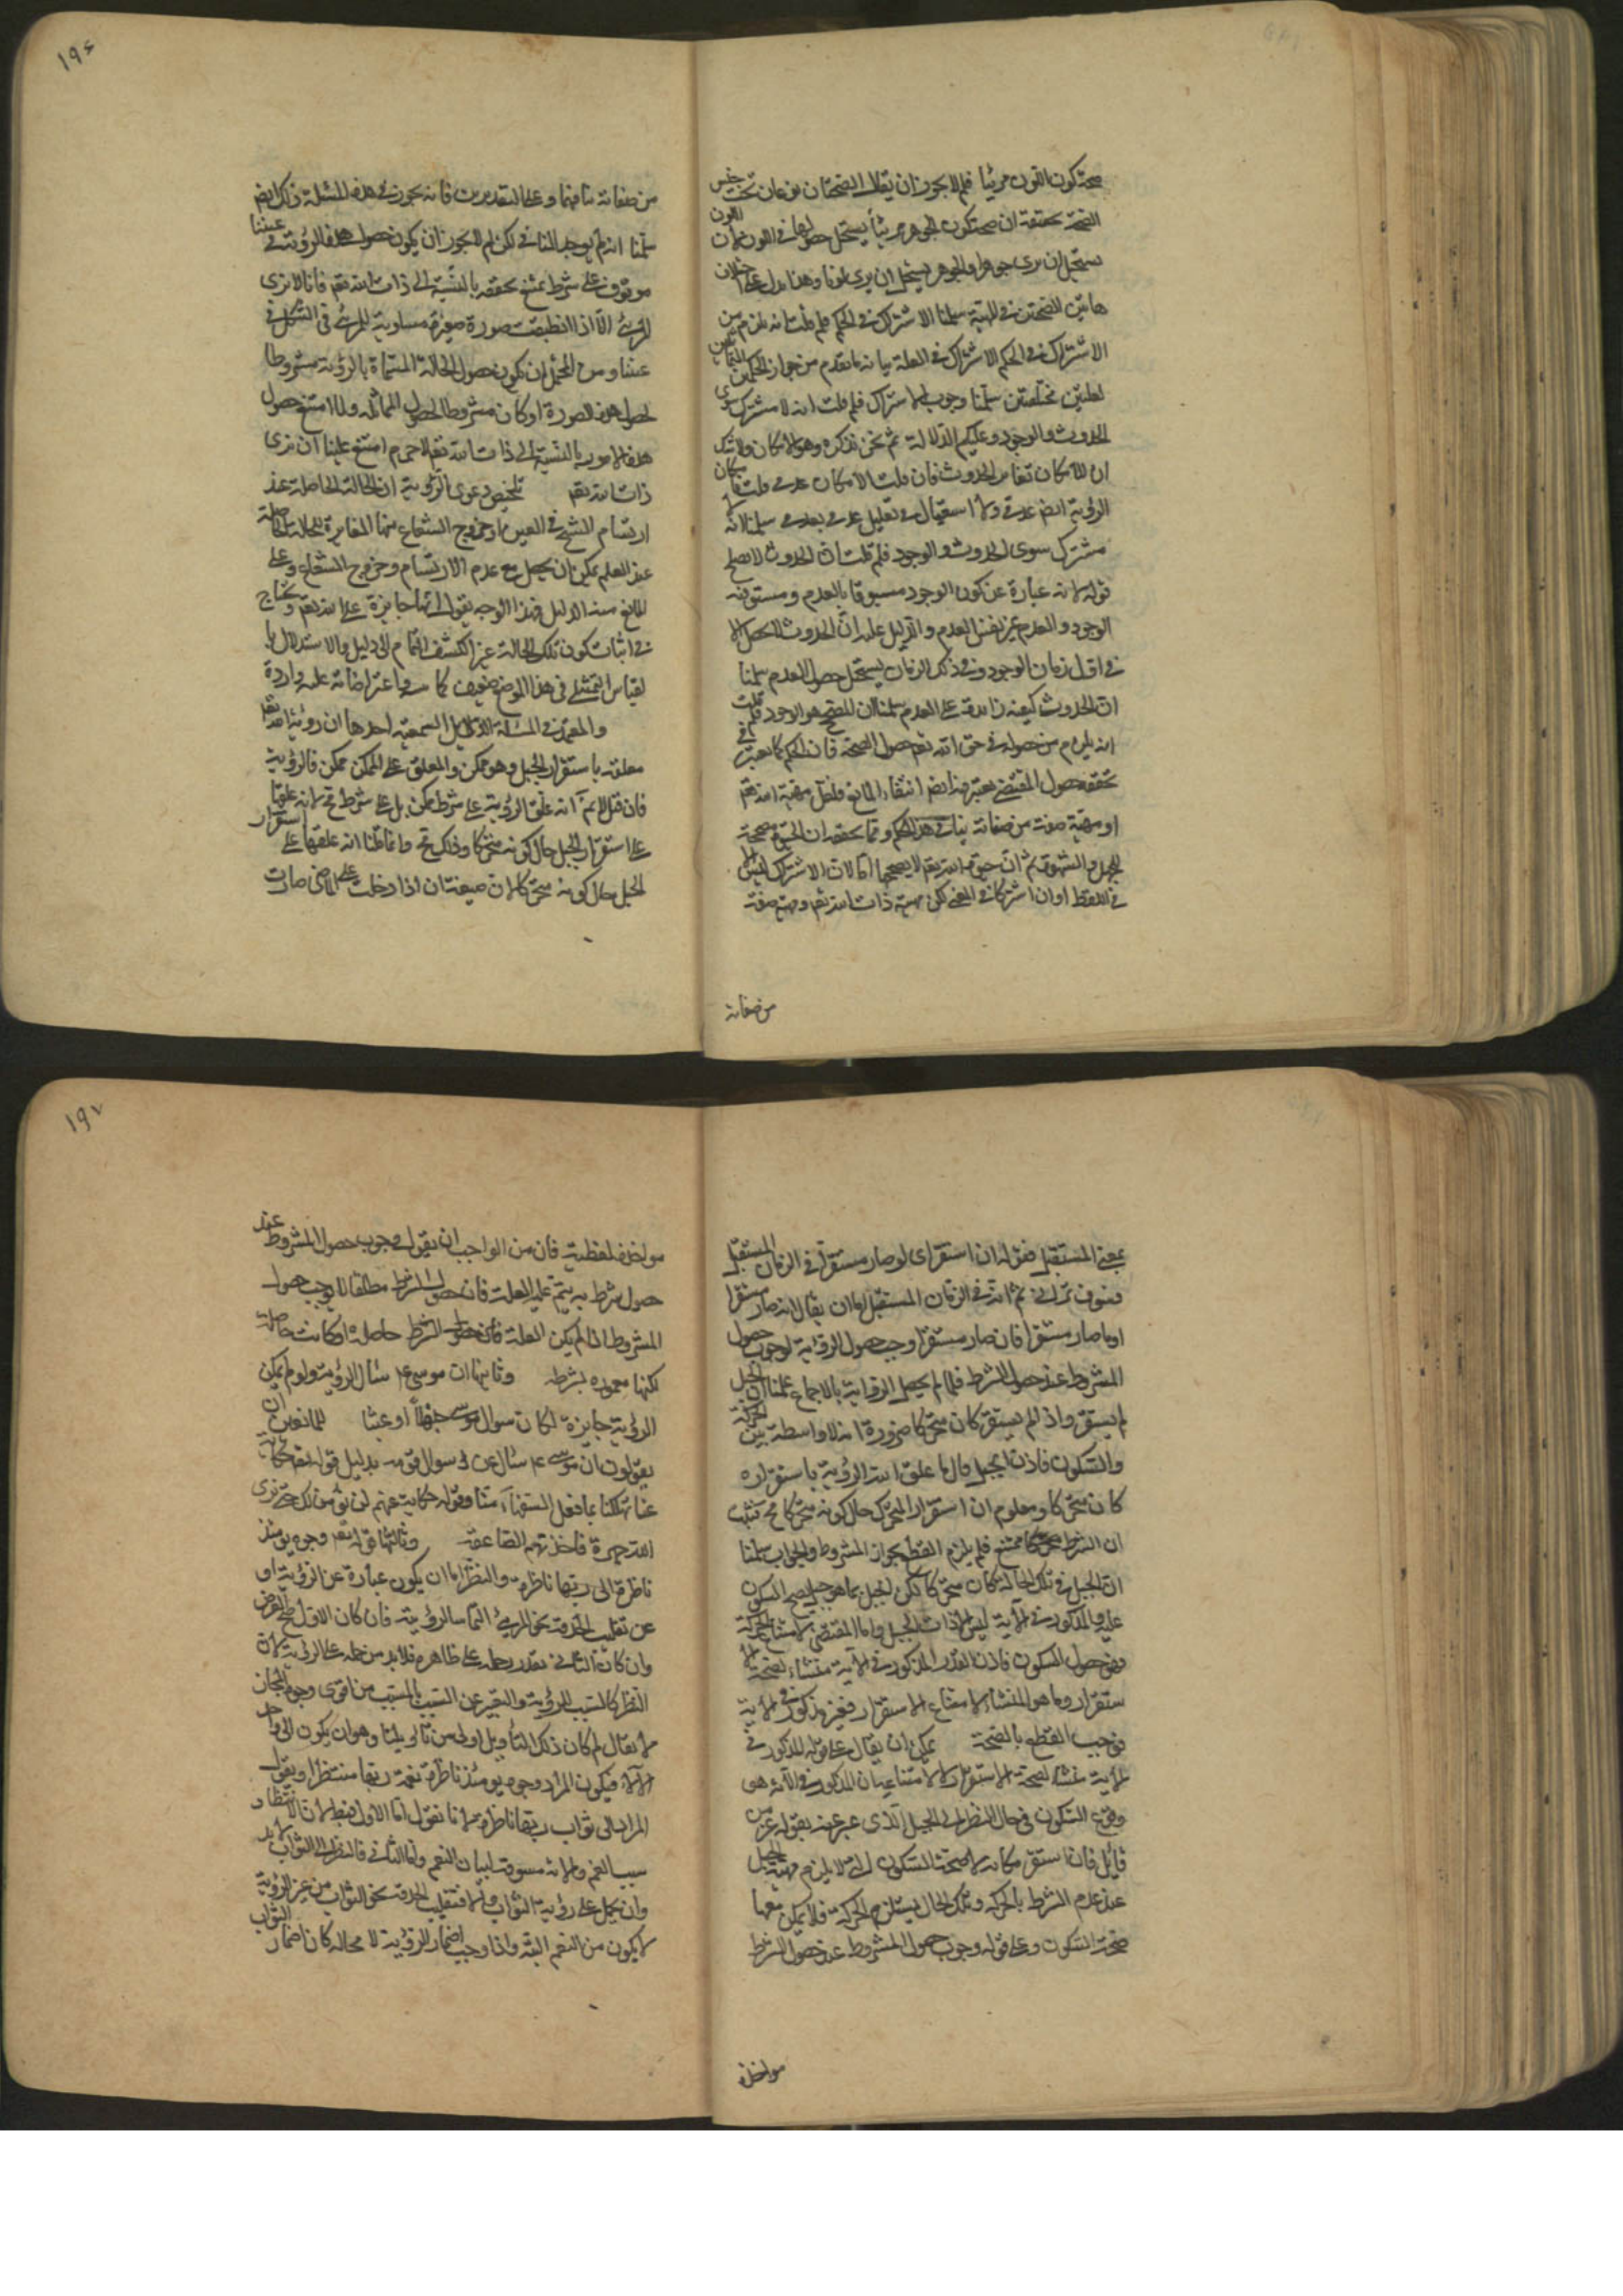 صحة كون اللون مرئيا فلم لا يجوز ان يقال الصحتان نوعان تحت جنس
الصحة تحقيقه ان صحة كون الجوهر مرئياً يستحيل حصولها في اللون لان اللون
يستحيل ان يرى جوهرا والجوهر يستحيل ان يرى لونا وهذا يدل على اختلاف
هاتين الصحتين في المهية سلمنا الاشتراك في الحكم فلم قلت انه يلزم من
الاشتراك في الحكم الاشتراك في العلة بيانه ما تقدم من جواز تعليل الحكمين المتماثلين
لعلتين مختلفتين سلمنا وجوب الاشتراك فلم قلت انه لا مشترك سوى
الحدوث والوجود وعليكم الدلالة ثم نحن نذكره وهو الامكان ولا شك
ان الامكان تغاير الحدوث فان قلت الامكان عدمي قلت فامكان
الرؤية ايضا عدمي ولا استحالة في تعليل عدمي بعدمي سلمنا انه لا
مشترك سوى الحدوث والوجود فلم قلت ان الحدوث لا يصلح
قوله لانه عبارة عن كون الوجود مسبوقا بالعدم ومسبوقية
الوجود والعدم غير نفس العدم والدليل عليه ان الحدوث لا يحصل الا
في اول زمان الوجود وفي ذلك الزمان يستحيل حصول العدم سلمنا
ان الحدوث كيفية زائدة على العدم سلمنا ان المصحح هو الوجود فلم قلت
انه يلزم من حصوله في حق الله تعم حصول الصحة فان الحكم كما يعتبر في
تحققه حصول المقتضي يعتبر فيه ايضا انتفاء المانع فلعل مهية الله تعم
او مهية صفة من صفاته ينافي هذا الحكم ومما يحققه ان الحيوة مصححة
للجهل والشهوة ثم ان حيوة الله تعم لا يصححها اما لان الاشتراك ليس الا
في اللفظ او ان اشتركا في المعنى لكن مهية ذات الله تعم ومهية صفة
من صفاته
١٩٦
من صفاته ينافيهما وعلى التقديرين فانه يجوز في هذه المسئلة ذلك ايضا
سلمنا انه لم يوجد المنافي لكن لم لا يجوز ان يكون حصول هذه الرؤية في عيننا
موقوف على شرط يمتنع تحققه بالنسبة الى ذات الله تعم فانا لا نرى
المرئي الا اذا انطبعت صورة صغيرة مساوية للمرئي في الشكل في
عيننا ومن المحتمل ان يكون حصول الحالة المسماة بالرؤية مشروطا
بحصول هذه الصورة او كان مشروطا بحصول المقابلة ولما امتنع حصول
هذه الامور بالنسبة الى ذات الله تعم لا جرم امتنع علينا ان نرى
ذات الله تعم تلخيص دعوى الرؤية ان الحالة الحاصلة عند
ارتسام الشبح في العين او خروج الشعاع منها المغايرة للحالة الحاصلة
عند العلم يمكن ان يحصل مع عدم الارتسام وخروج الشعاع وعلى
المانع منه الدليل فبهذا الوجه يقول انها جايزة على الله تعم ويحتاج
في اثبات كون تلك الحالة غير الكشف التام الى دليل والاستدلال بـ
القياس التمثيلي في هذا الموضع ضعيف كما مر واعتراضاته عليه واردة
والمعتمد في المسئلة الدلايل السمعية احدها ان رؤية الله تعم
معلقة باستقرار الجبل وهو ممكن والمعلق على الممكن ممكن فالرؤية
فان قيل لا نم انه علق الرؤية على شرط ممكن بل على شرط مح لانه علقها
على استقرار الجبل حال كونه متحركا وذلك مح وانما قلنا انه علقها على استقرار
الجبل حال كونه متحركا لان صيغة ان اذا دخلت على الماضي صارت
بمعنى المستقبل فقوله ان استقر اى لو صار مستقرا في الزمان المستقبل
فسوف تراني ثم انه في الزمان المستقبل اما ان يقال انه صار مستقرا
او ما صار مستقرا فان صار مستقرا وجب حصول الرؤية لوجوب حصول
المشروط عند حصول الشرط فلما لم يحصل الرؤية بالاجماع علمنا ان الجبل
لم يستقر واذ لم يستقر كان متحركا ضرورة انه لا واسطة بين الحركة
والسكون فاذن الجبل حال ما علق الله الرؤية باستقراره
كان متحركا ومعلوم ان استقرار المتحرك حال كونه متحركا مح فثبت
ان الشرط ممتنع فلم يلزم القطع بجواز المشروط والجواب سلمنا
ان الجبل في تلك الحالة كان متحركا لكن الجبل بما هو جبل يصح السكون
عليه والمذكور في الآية ليس الا ذات الجبل واما المقتضي لامتناع الحركة
فهو حصول السكون فاذن القدر المذكور في الآية منشاء لصحة الا
ستقرار وما هو المنشاء لامتناع الاستقرار فغير مذكور في الآية
فوجب القطع بالصحة يمكن ان يقال على قوله المذكور في
الآية منشاء لصحة الاستقرار لا لامتناعه ان المذكور في الآية هى
وقوع السكون في حال النظر الى الجبل الذى عبر عنه بقوله عز من
قائل فان استقر مكانه لا صحة السكون لانه لا يلزم مهية الجبل
عند عدم الشرط بالحركة وتلك الحال يستلزم الحركة فلا يمكن معها
صحة السكون وعلى قوله وجوب حصول المشروط عند حصول الشرط
مواخذه
١٩٧
مواخذة لفظية فان من الواجب ان يقول وجوب حصول المشروط عند
حصول شرط به يتم علية العلة فان حصول الشرط مطلقا لا يوجب حصول
المشروط اذا لم يكن العلة حاصلة او كانت حاصلة
لكنها معوزة بشرط وثانيها ان موسى ع م سئال الرؤية ولو لم يكن
الرؤية جايزة لكان سوال موسى جهلاً او عبثا للمانعين ان
يقولون ان موسى ع م سئال عن لسوال قومه بدليل قوله تعم حكاية
عنا تهلكنا بما فعل السفهاء منا وقوله حكاية عنهم لن نؤمن لك حتى نرى
الله جهرة فاخذتهم الصاعقة وثالثها قوله تعم وجوه يومئذ
ناظرة الى ربها ناظرة والنظر اما ان يكون عبارة عن الرؤية او
عن تقليب الحدقة نحو المرئي التماسا لرؤيته فان كان الاول صح الغرض
وان كان الثاني تعذر حمله على ظاهره فلابد من حمله على الرؤية لان
النظر كالسبب للرؤية والتعبير عن السبب بالمسبب من اقوى وجوه المجاز
لا يقال لم كان ذلك التأويل اولى من تاويلنا وهو ان يكون الى واحد
الآلاء فيكون المراد وجوه يومئذ ناظرة نعمة ربها منتظرا ويقول
المراد الى ثواب ربها ناظرة لانا نقول اما الاول فبط لان الانتظار
سبب الغم والآية مسوقة لبيان النعم واما الثاني فالنظر الى الثواب لابد
وان يحمل على رؤية الثواب والا فتقليب الحدقة نحو الثواب من غير الرؤية
لا يكون من النعم البتة واذا وجب اضمار الرؤية لا محالة كان اضمار الثواب